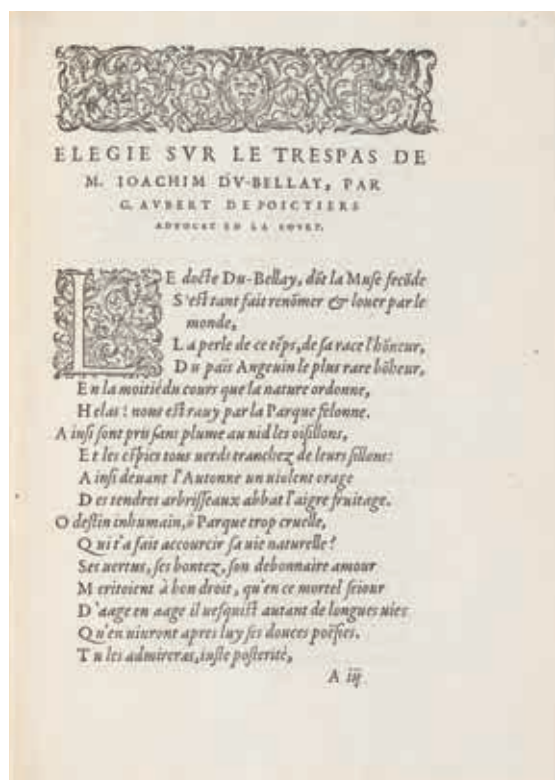 ELEGIE SVR LE TRESPAS DE
M. IOACHIM DV-BELLAY, PAR
G. AVBERT DE POICTIERS
ADVOCAT EN LA COVRT.
LE docte Du-Bellay, dõt la Muse fecõde
S'est tant fait renõmer & louer par le
monde,
La perle de ce tẽps, de sa race l'hõneur,
Du païs Angeuin le plus rare bõheur,
En la moitié du cours que la nature ordonne,
Helas! nous est rauy par la Parque felonne.
Ainsi sont pris sans plume au nid les oisillons,
Et les espics tous uerds tranchez de leurs sillons:
Ainsi deuant l'Autonne un uiulent orage
Des tendres arbrisseaux abbat l'aigre fruitage.
O destin inhumain, ô Parque trop cruelle,
Qui t'a fait accourcir sa uie naturelle?
Ses uertus, ses bontez, son debonnaire amour
Meritoient à bon droit, qu'en ce mortel seiour
D'aage en aage il uesquist autant de longues uies
Qu'en uiuront apres luy ses douces poësies.
Tu les admireras, iuste posterité,
A iij